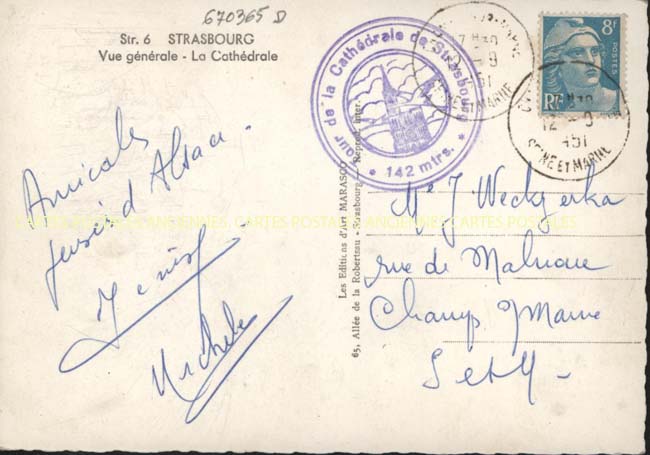 670365 D
Str. 6 STRASBOURG
Vue générale - La Cathédrale
Amicales
pensées d'Alsace.
Denise
Michele
Tour de la Cathédrale de Strasbourg
* 142 mtrs. *
Les Editions d'Art MARASCO
65, Allée de la Robertsau - Strasbourg - Reprod. inter.
8F
POSTES
RF
SEINE ET MARNE
12 - 9
1951
SEINE ET MARNE
J Weckerka
rue de
Champs s/ Marne
S et M -
CARTES POSTALES ANCIENNES, CARTES POSTALES ANCIENNES CARTES POSTALES